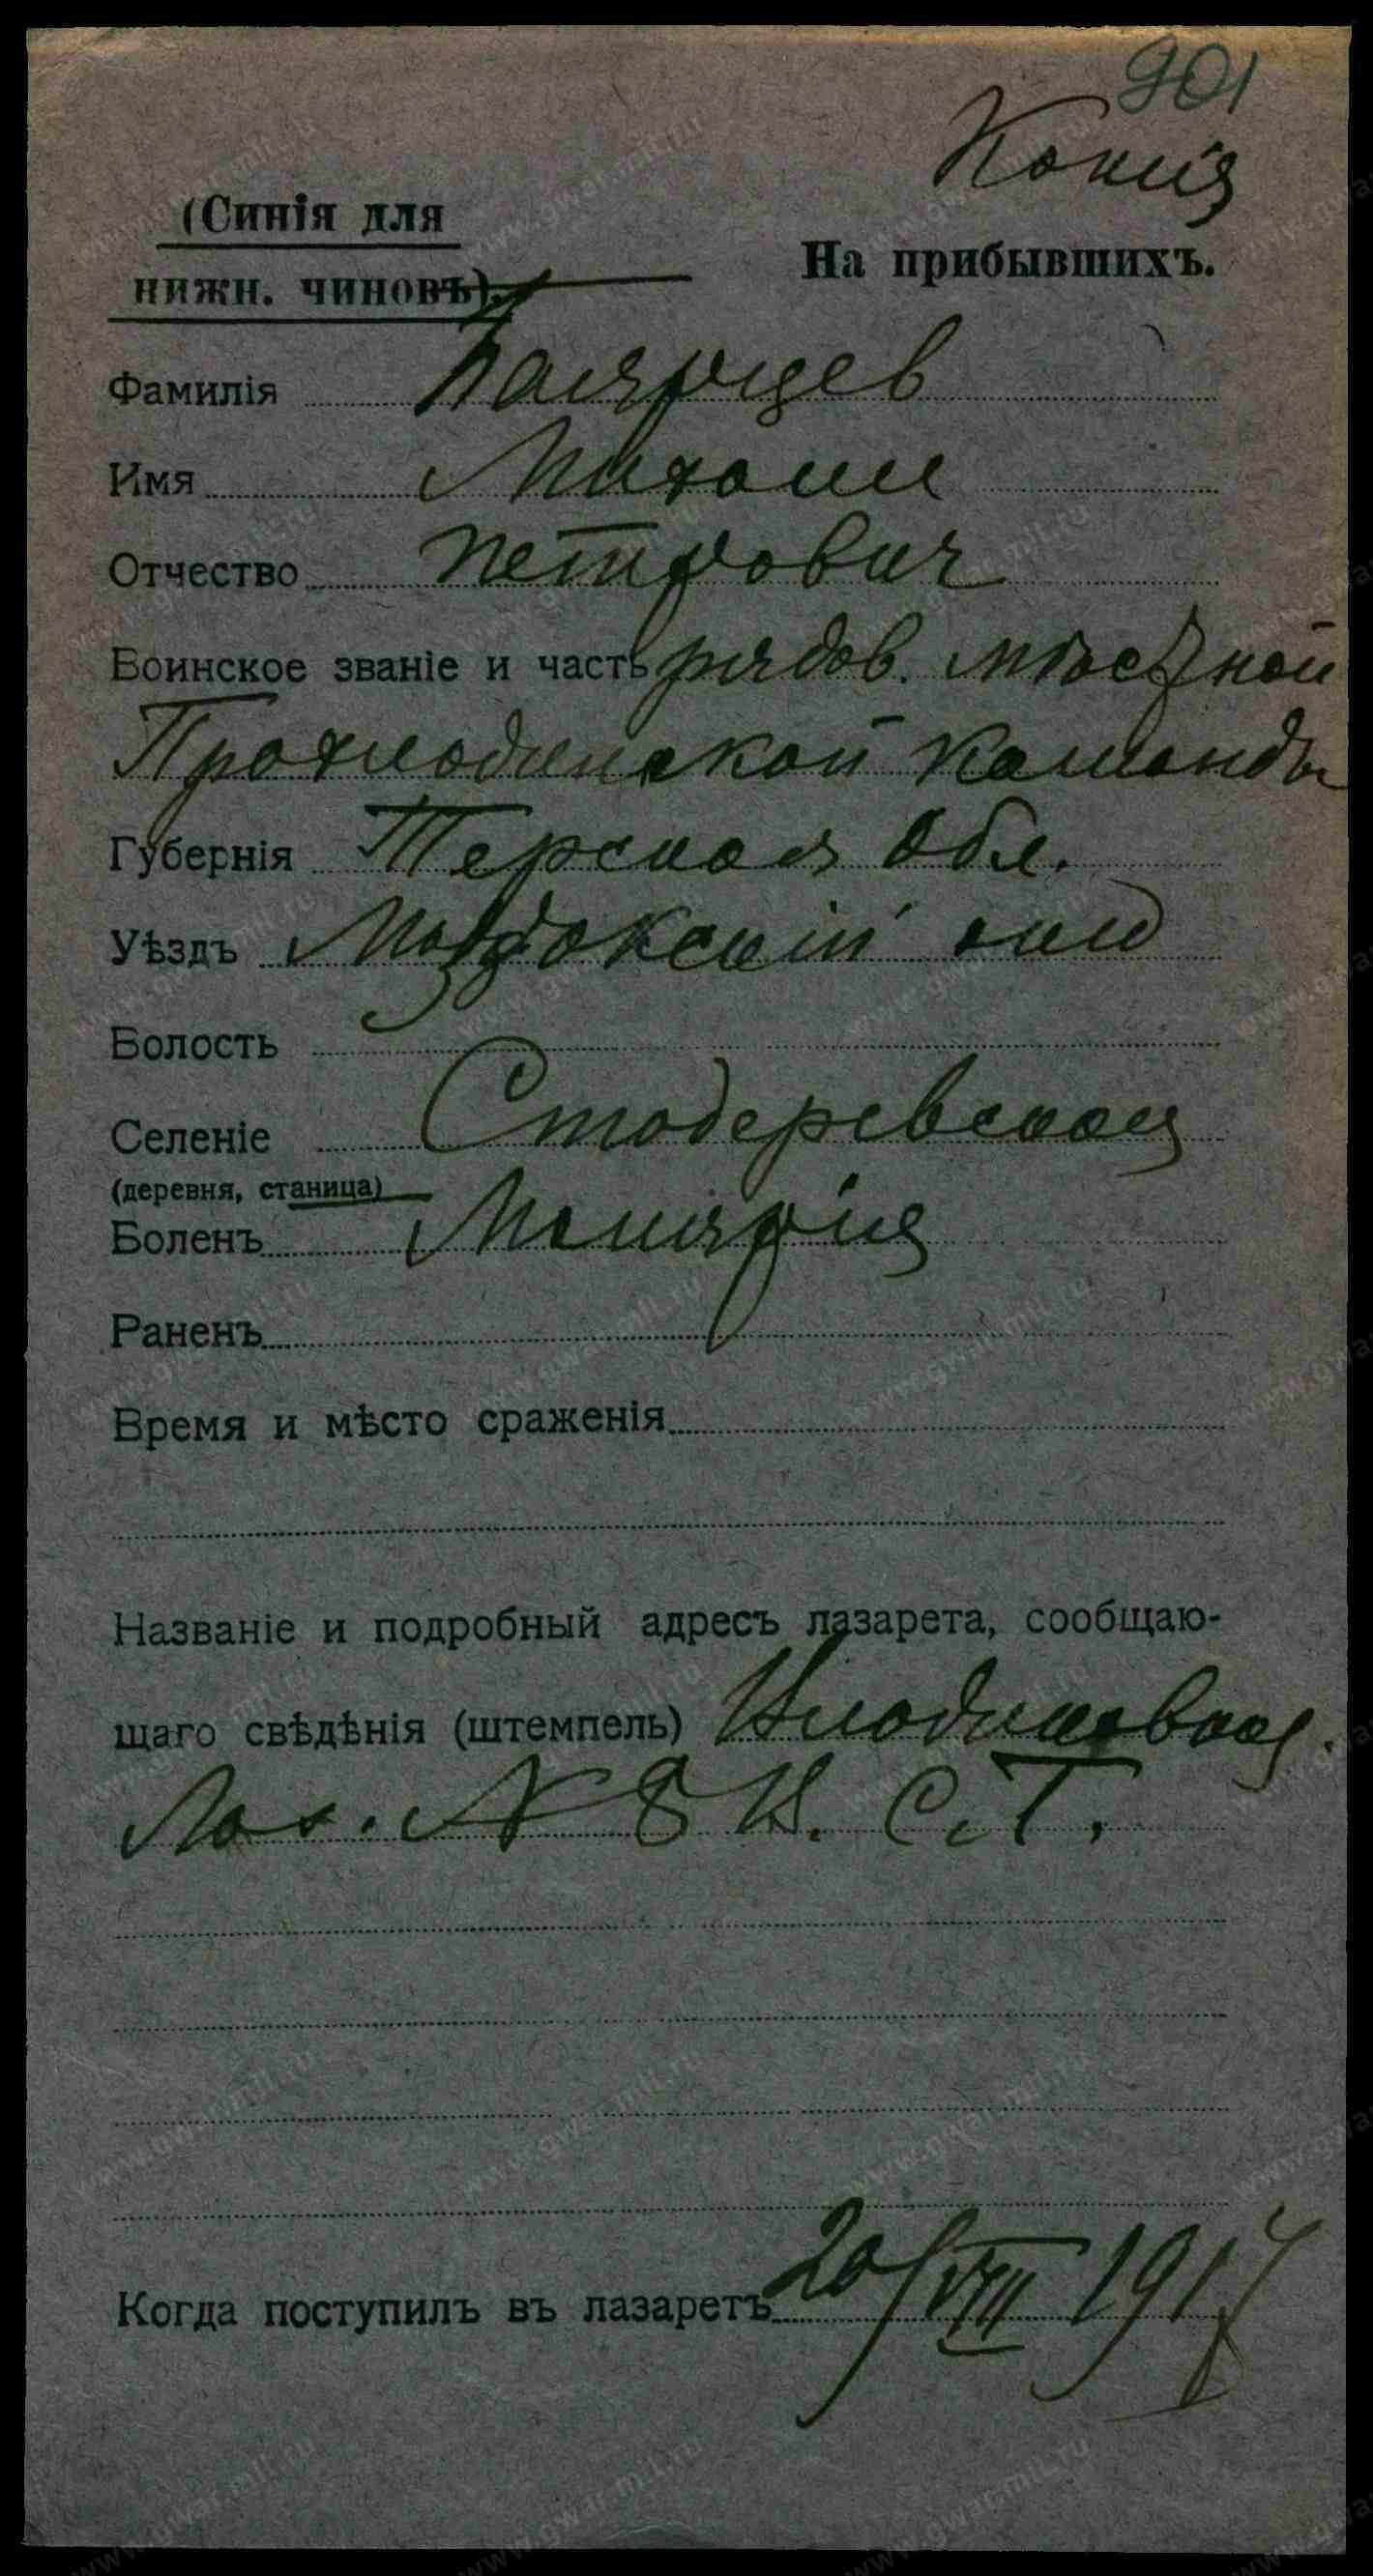 901
Копия
(Синія для
нижн. чиновъ).
На прибывшихъ.
Фамилія
Имя Михаил
Отчество Петрович
Воинское званіе и часть рядов. мѣстной
Прохладинской команды
Губернія Терская Обл.
Уѣздъ Моздокскій
Волость
Селеніе Стодеревская
(деревня, станица)
Боленъ Малярія
Раненъ
Время и мѣсто сраженія
Названіе и подробный адресъ лазарета, сообщаю-
щаго свѣдѣнія (штемпель)
Лаз. № 8 В. С. Г.
Когда поступилъ въ лазаретъ 20/VIII 1917